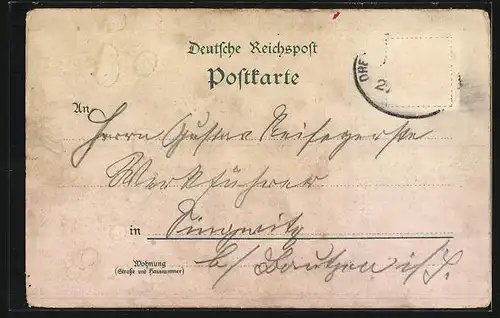 Deutsche Reichspost
Postkarte
DRE
2
An Herrn Gustav Reisegerste
Werkführer
in Singwitz
Wohnung
(Straße und Hausnummer)
b/ Bautzen i/S.